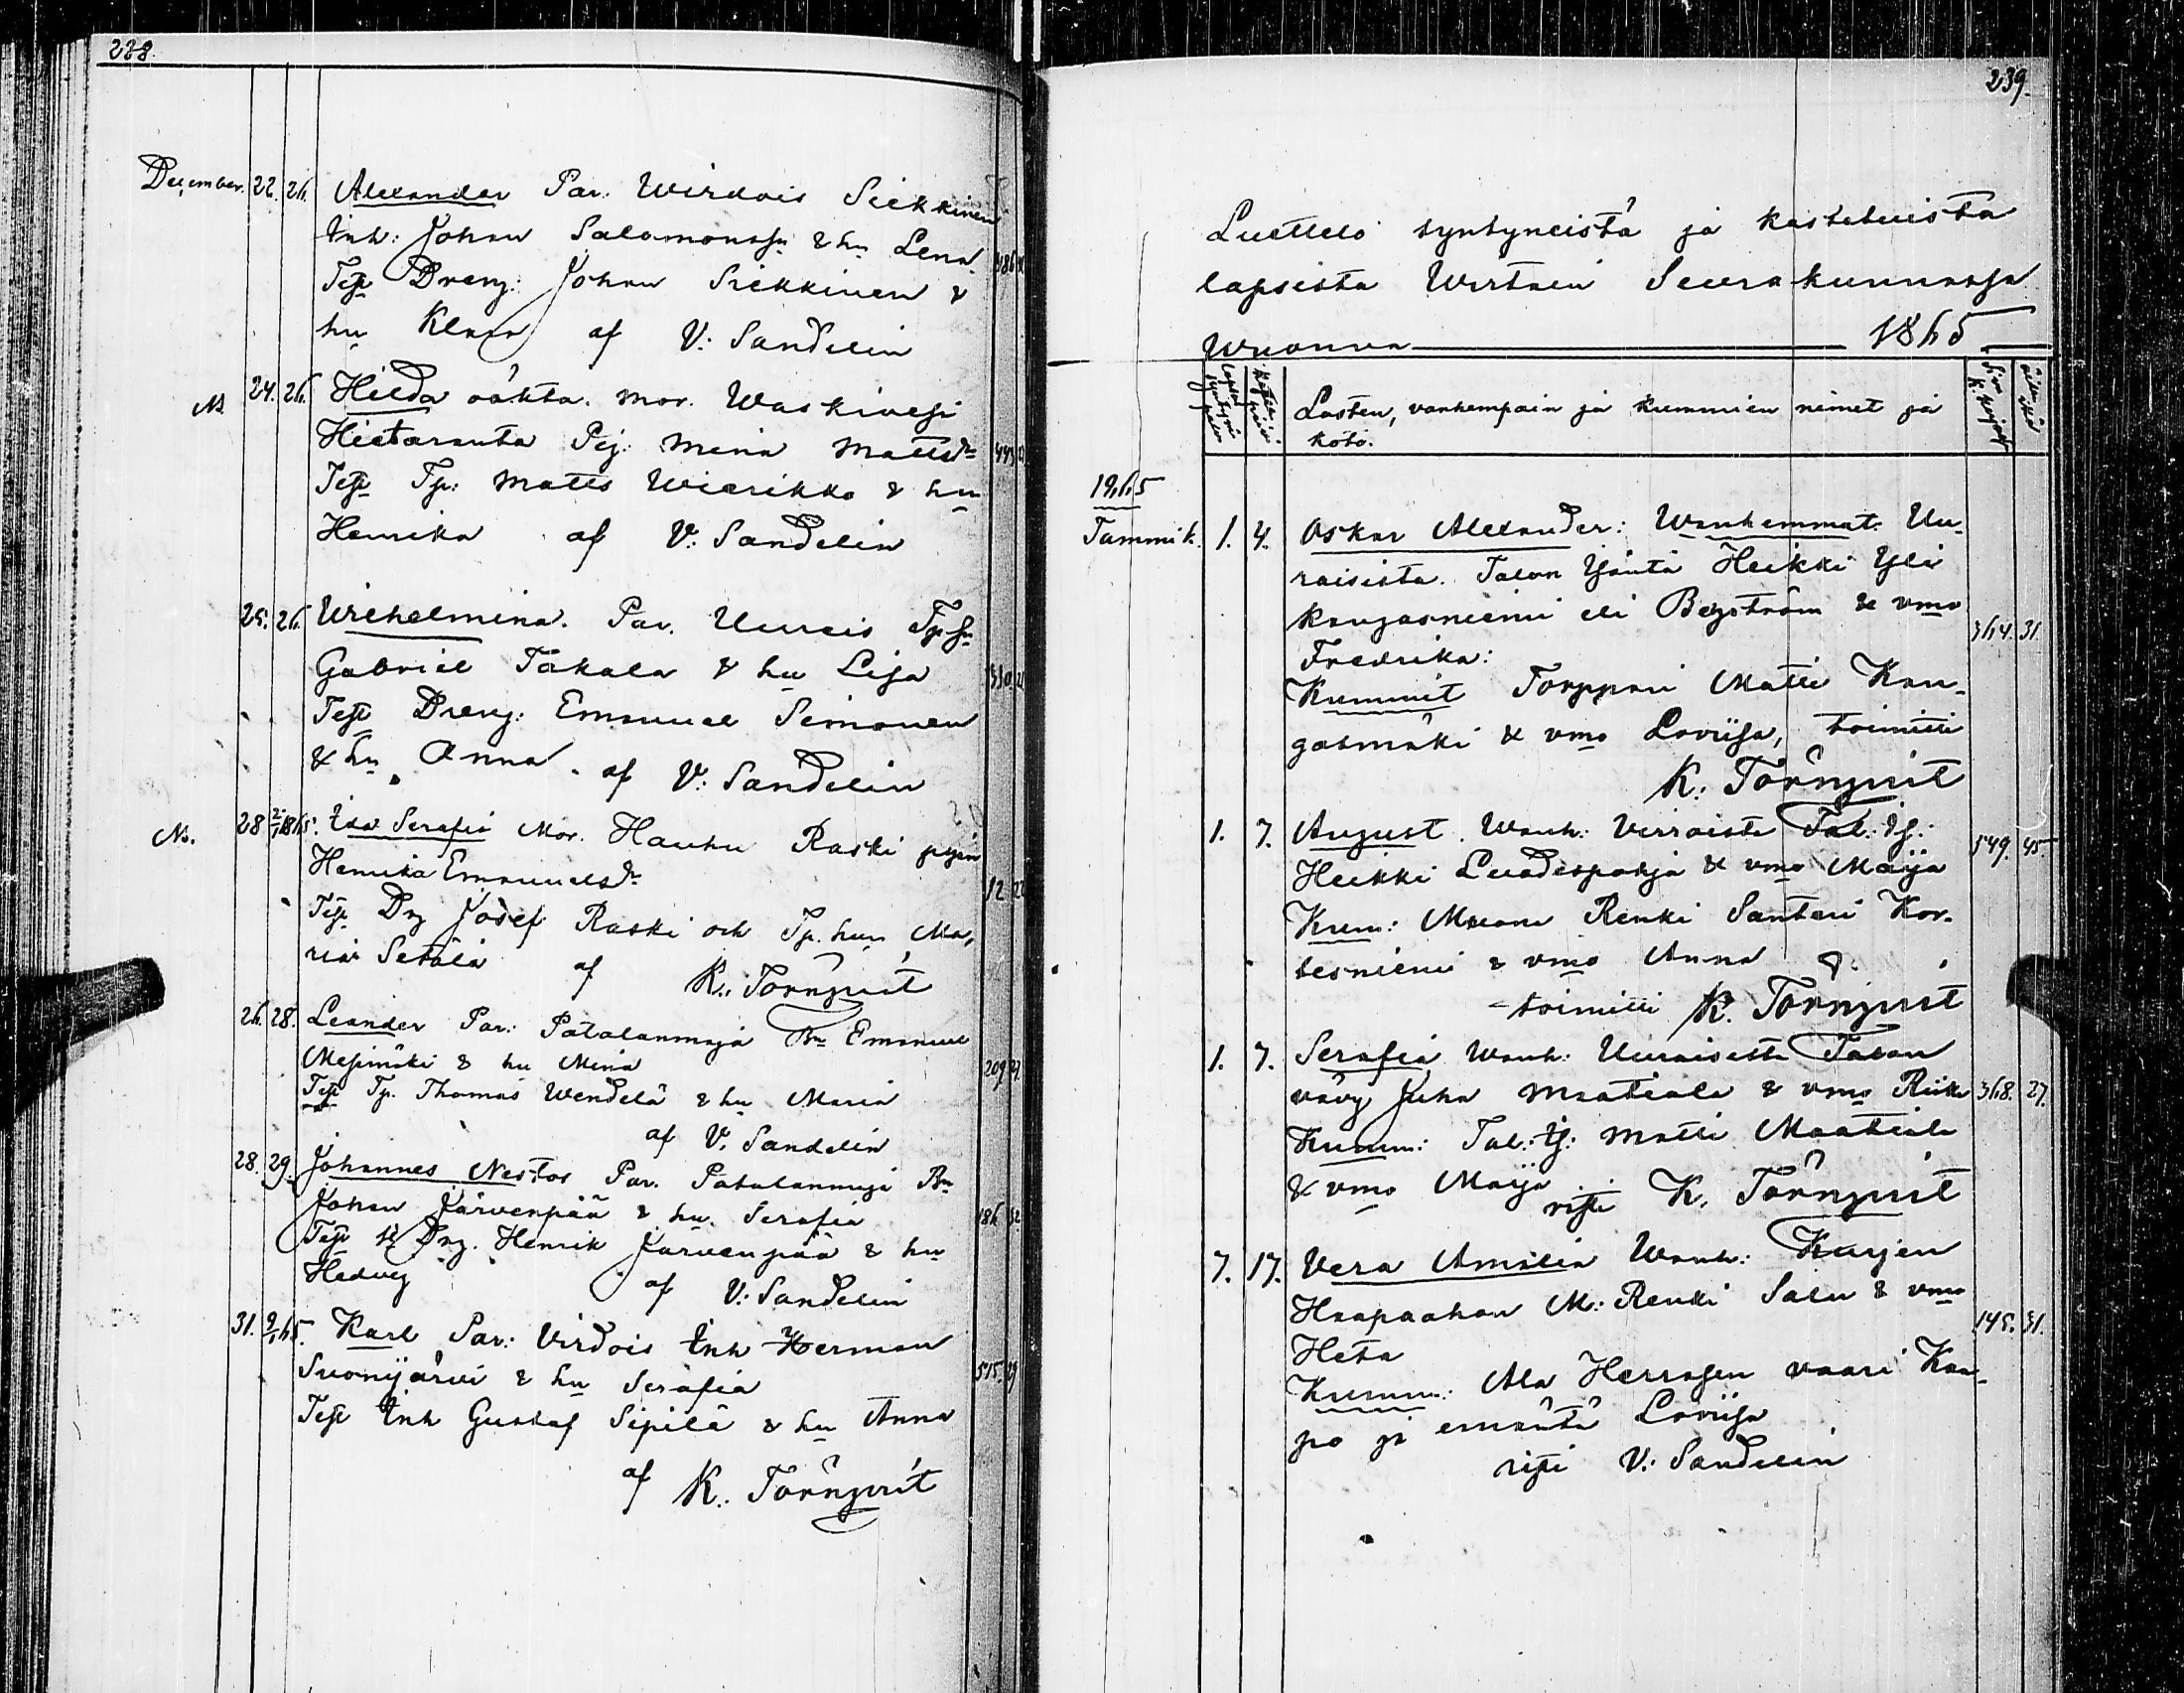 238.
December. 22. 26. Alexander Par. Wirdois Siekkinen
Inh: Johan Salomonss: & hu Lena 486
Test Dreng: Johan Siekkinen &
hu Klara af V: Sandelin
N. 24. 26. Hilda oäkta. mor. Waskivesi
Hietaranta Pig: Mina Mattsdr 443
Test Tp: Matts Wierikko & hu
Henrika af V: Sandelin
25. 26. Wilhelmina. Par. Uurais Tp.
Gabriel Takala & hu Lisa
Test Dreng: Emanuel Simonen
& hu Anna. af V: Sandelin
No. 28 2/1 1865. Ida Serafia Mor. Hauhu Raski pigan
Henrika Emanuelsdr 12 22
Test Dg Josef Raski och Tp. hun Ma-
ria Setälä af K: Törnqvist
26. 28. Leander Par: Patalanmaja Bn Emanuel
Mesimäki & hu Mina 209 27.
Test Tp. Thomas Wendelä & hu Maria
af V. Sandelin
28. 29. Johannes Nestor Par. Patalanmaja Bn
Johan Järvenpää & hu. Serafia 186 32
Test Dng. Henrik Järvenpää & hu
Hedvig af V: Sandelin
31. 9/1 65. Karl Par: Virdois Inh Herman
Suonijärvi & hu Serafia 515. 29
Test Inh Gustaf Sipilä & hu Anna
af K. Törnqvist
239.
Luettelo syntyneistä ja kastetuista
lapsista Wirtain Seurakunnassa
Wuonna 1865
Lasten, vanhempain ja kummien nimet ja
koto.
1865
Tammik. 1. 4. Oskar Alexander: Wanhemmat: Uu-
raisista. Talon Isäntä Heikki Yli
kangasniemi eli Begström & vmo 364. 31.
Fredrika:
Kummit Torppari Matti Kan-
gasmäki & vmo Loviisa, toimitti
K. Törnqvist
1. 7. August. Wanh: Virroista Tal: Is: 549. 45
Heikki Luodespohja & vmo Maija
Kum: Muona Renki Santeri Kor-
tesniemi & vmo Anna
toimitti K. Törnqvist
1. 7. Serafia Wanh: Uuraisesta Talon
vävy Juha Maatiala & vmo Riika 368. 27.
Kumm: Tal: Is: Matti Maatiala
& vmo Maija risti K. Törnqvist
7. 17. Vera Amalia Wanh: Kurjen
Haapaahon M: Renki Salu & vmo 145. 31.
Heta
Kumm: Ala Herrasen vaari Kaa-
po ja emäntä Loviisa
risti V: Sandelin